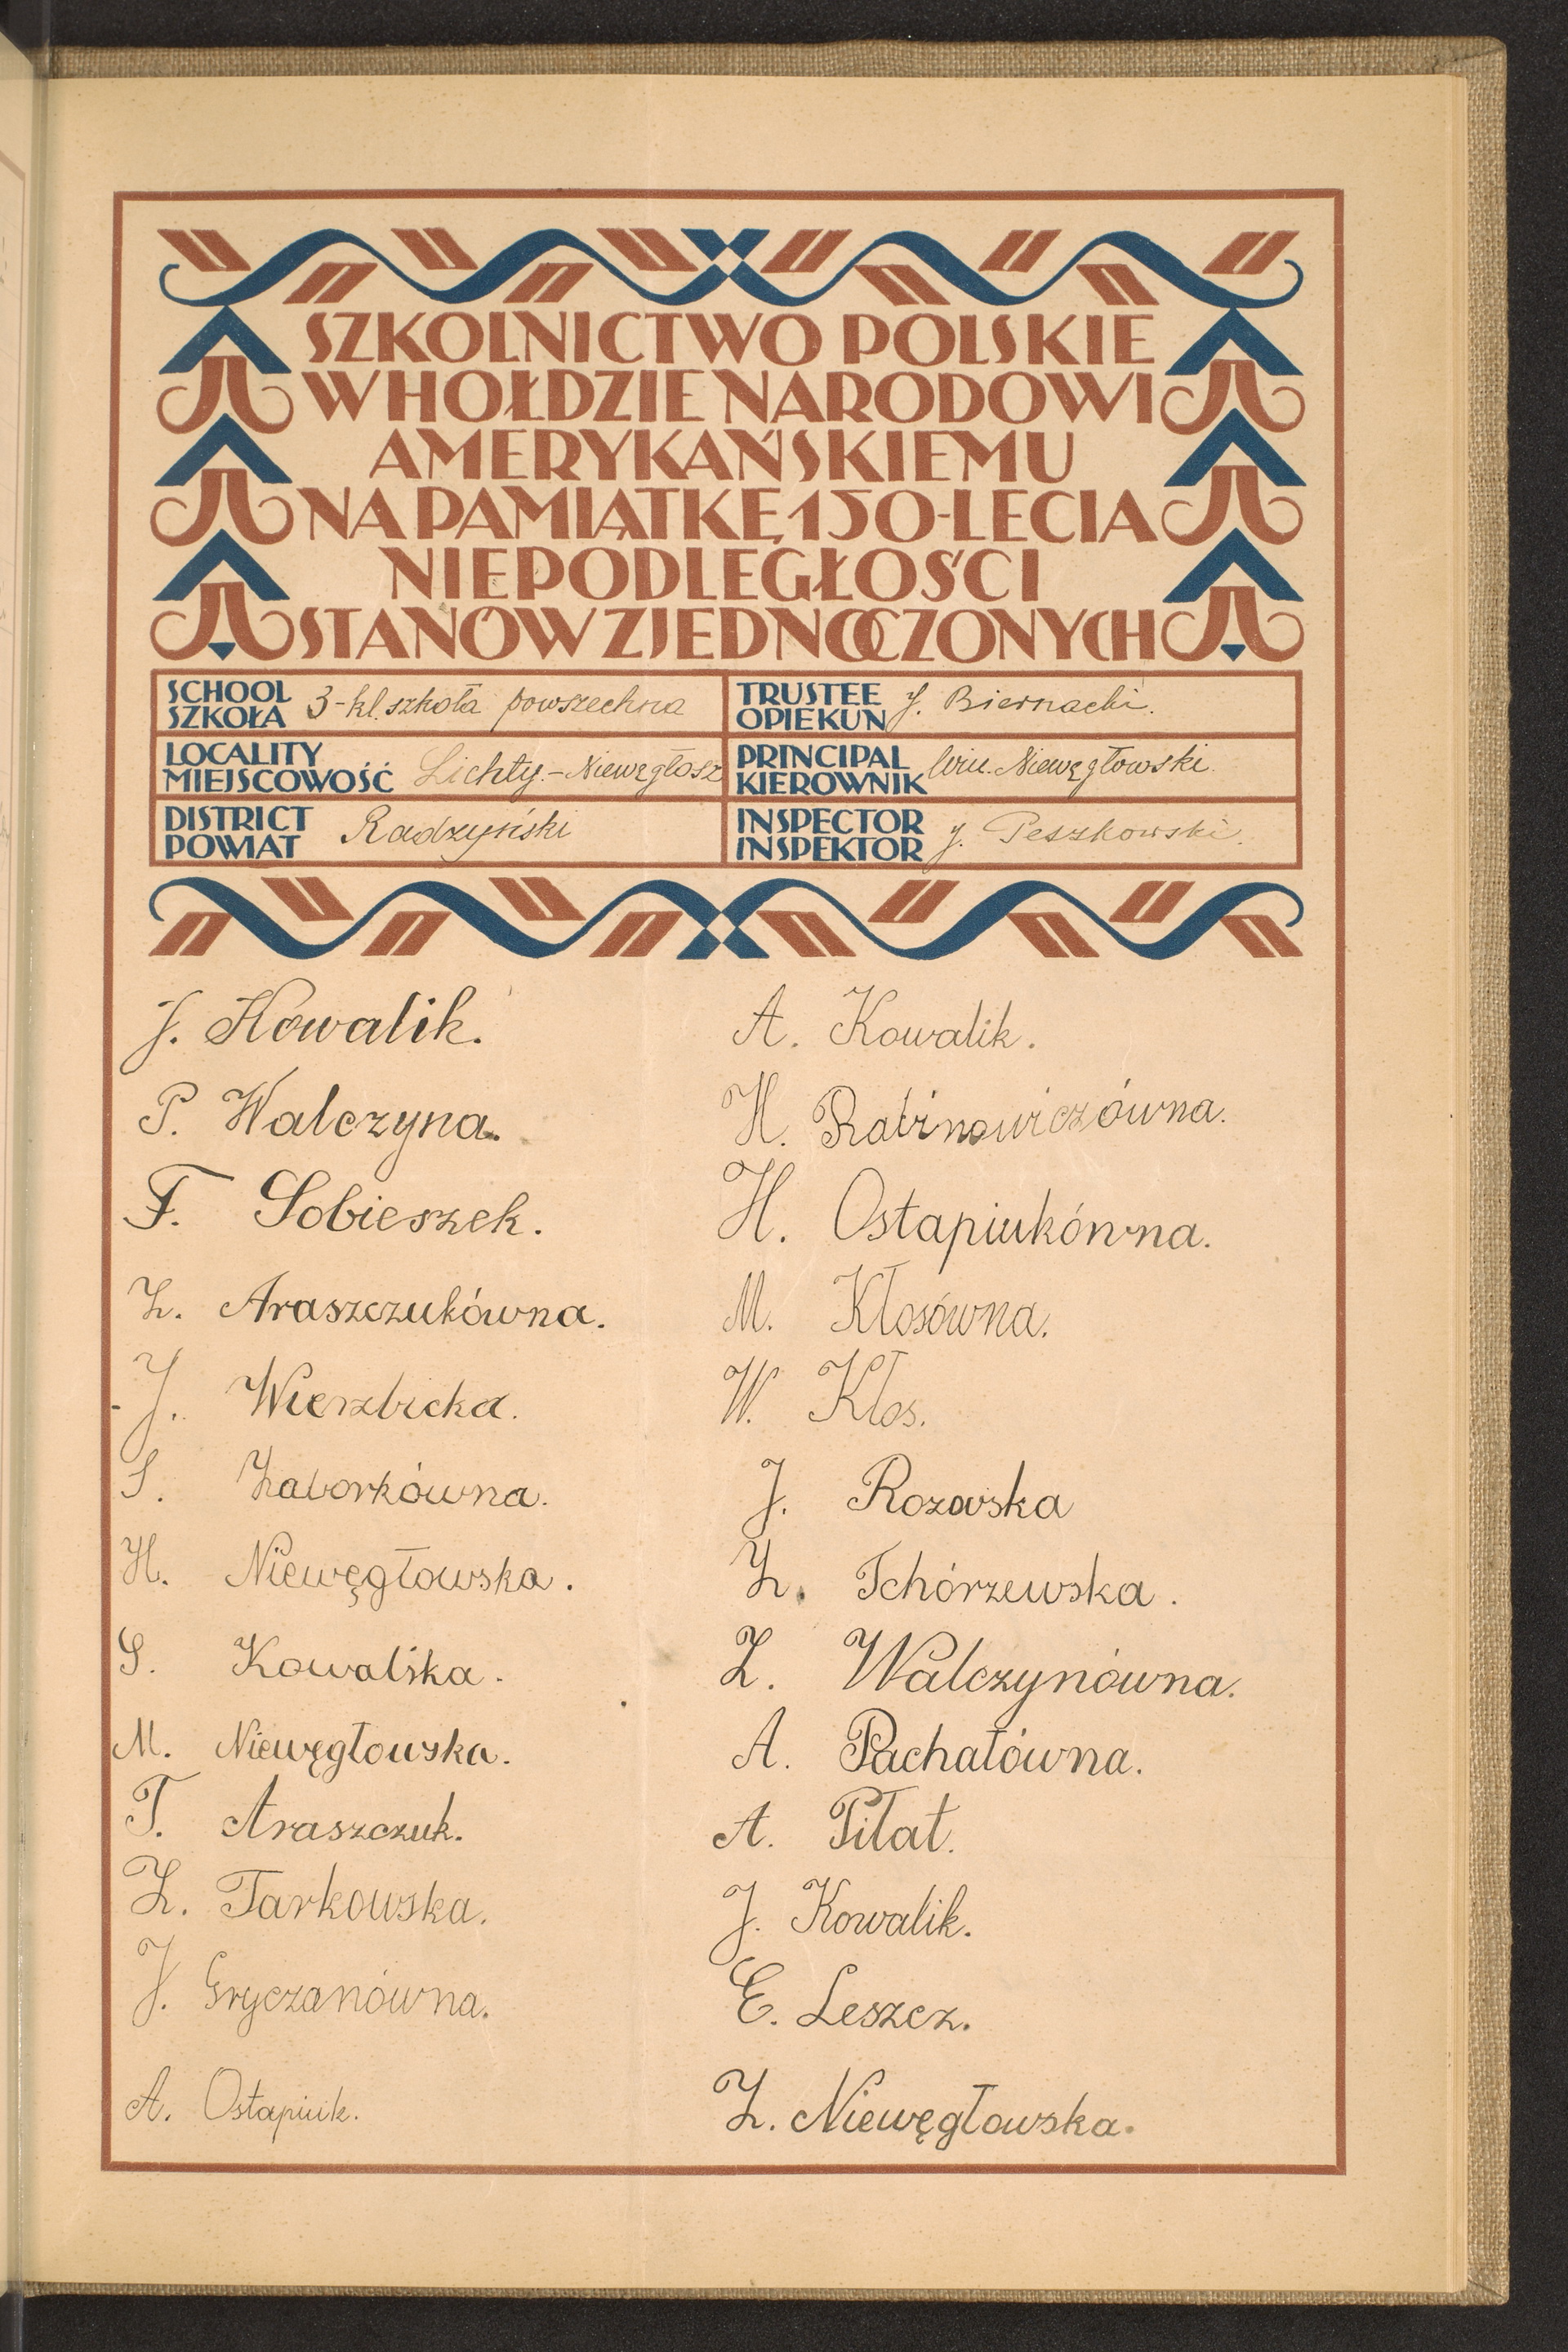 SZKOLNICTWO POLSKIE
W HOŁDZIE NARODOWI
AMERYKAŃSKIEMU
NA PAMIĄTKĘ 150-LECIA
NIEPODLEGŁOŚCI
STANÓW ZJEDNOCZONYCH
SCHOOL
SZKOŁA 3-kl. szkoła powszechna
TRUSTEE
OPIEKUN J. Biernacki.
LOCALITY
MIEJSCOWOŚĆ Lichty.-Niewęgłosz
PRINCIPAL
KIEROWNIK Niewęgłowski.
DISTRICT
POWIAT Radzyński
INSPECTOR
INSPEKTOR J. Peszkowski.
J. Kowalik.
P. Walczyna.
F. Sobieszek.
Z. Araszczukówna.
J. Wierzbicka.
S. Zaborkówna.
H. Niewęgłowska.
S. Kowalska.
M. Niewęgłowska.
T. Araszczuk.
Z. Tarkowska.
J. Gryczanówna.
A. Ostapiuk.
A. Kowalik.
H. Rabinowiczówna.
H. Ostapiukówna.
M. Kłosówna.
W. Kłos.
J. Rozowska
Z. Tchórzewska.
Z. Walczynówna.
A. Pachałówna.
A. Piłat.
J. Kowalik.
E. Leszcz.
Z. Niewęgłowska.